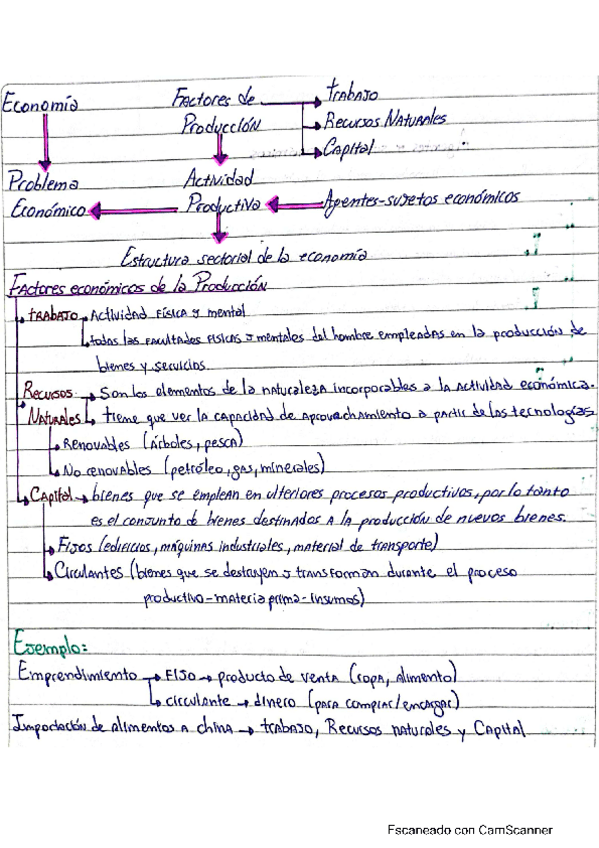 Economía Factores de Trabajo
Producción Recursos Naturales
Capital
Problema Actividad
Económico Productiva Agentes-sujetos económicos
Estructura sectorial de la economía
Factores económicos de la Producción
Trabajo Actividad física y mental
todas las facultades físicas y mentales del hombre empleadas en la producción de
bienes y servicios
Recursos Son los elementos de la naturaleza incorporables a la actividad económica.
Naturales tiene que ver la capacidad de aprovechamiento a partir de las tecnologías
Renovables (Árboles, pesca)
No renovables (petróleo, gas, minerales)
Capital → bienes que se emplean en ulteriores procesos productivos, por lo tanto
es el conjunto de bienes destinados a la producción de nuevos bienes.
Fijos (edificios, máquinas industriales, material de transporte)
Circulantes (bienes que se destruyen y transforman durante el proceso
productivo-materia prima-insumos)
Ejemplo:
Emprendimiento → Fijo → producto de venta (ropa, alimento)
circulante → dinero (para comprar/encargar)
Importación de alimentos a china → trabajo, Recursos naturales y Capital
Escaneado con CamScanner